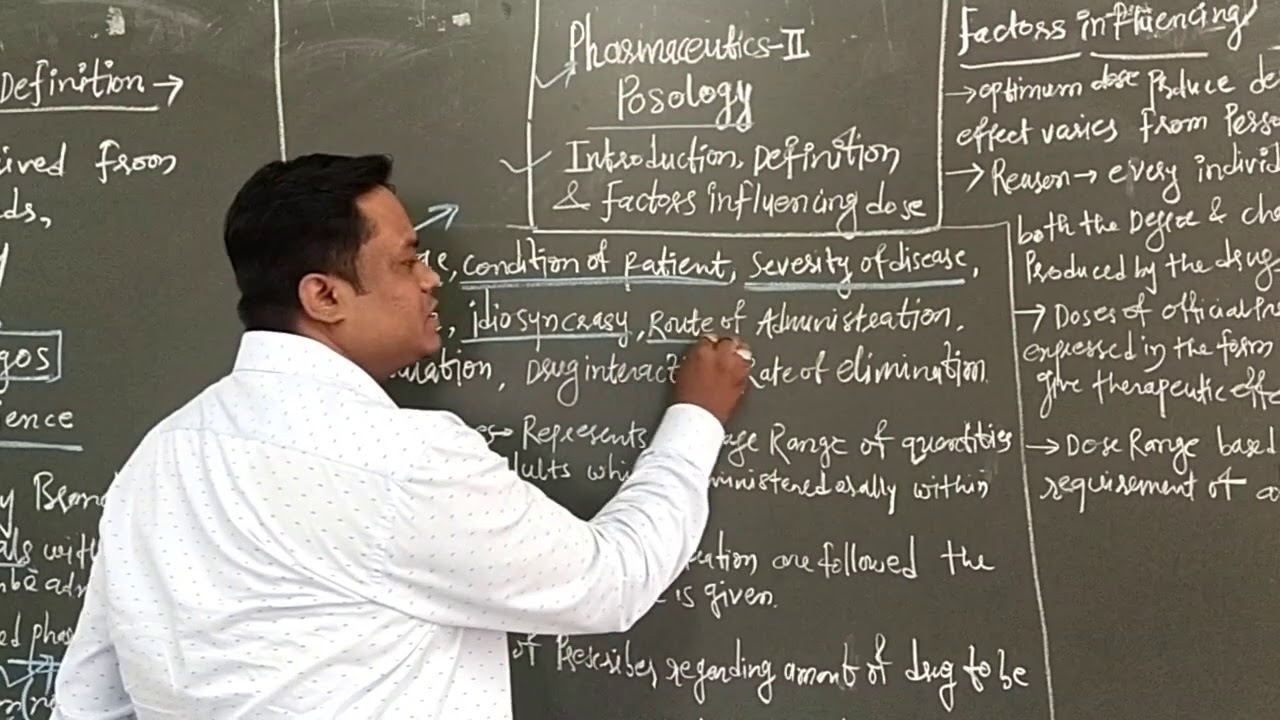 Definition →
ived from
ds,
y
gos
ience
y
als with
be
ed
Pharmaceutics-II
Posology
Introduction, Definition
& factors influencing dose
condition of patient, severity of disease,
idiosyncrasy, Route of Administration,
Drug interacti Rate of elimination
Represents age Range of quantities
dults whi ministered orally within
ation are followed the
is given.
of Prescriber regarding amount of drug to be
Factors influencing
→ optimum dose Produce de
effect varies from Perso
→ Reason → every individ
both the Degree & cha
Produced by the drug
→ Doses of official
expressed in the form
give therapeutic effe
→ Dose Range based
requirement of a